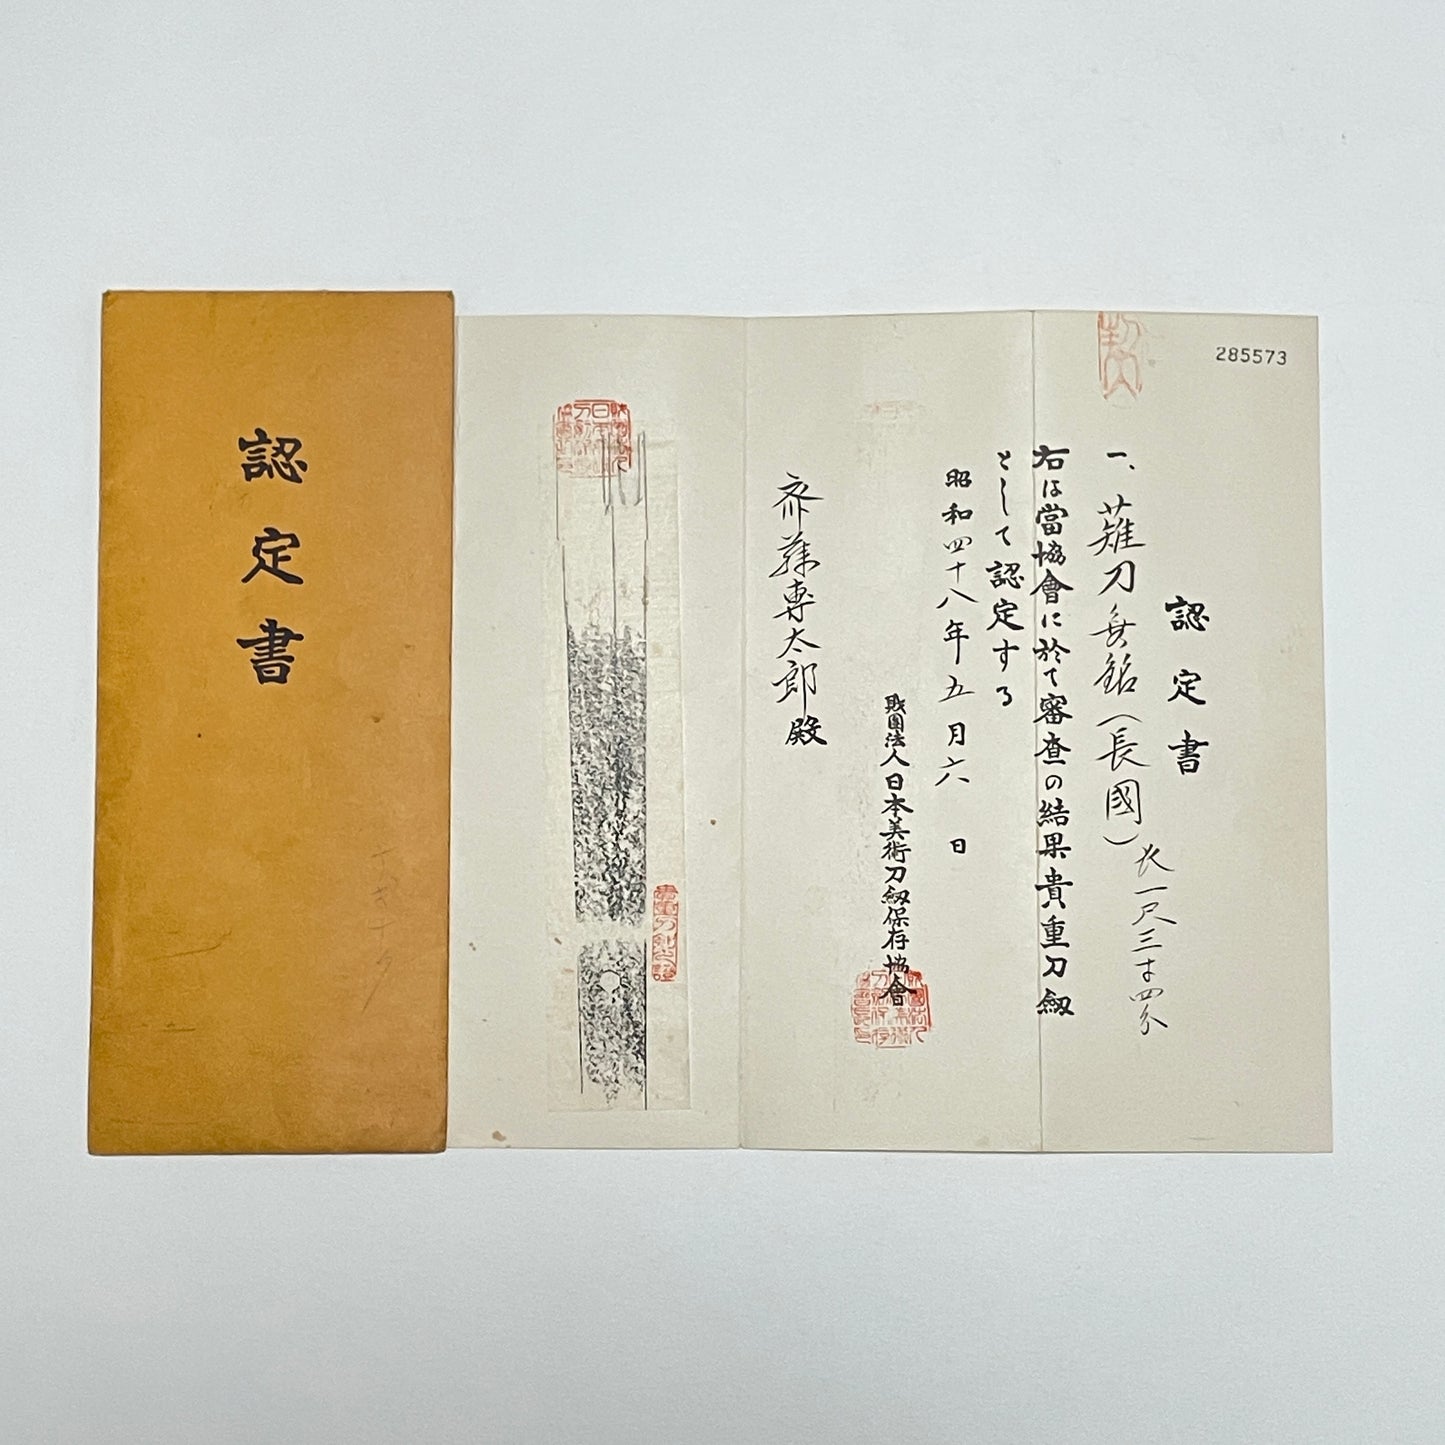 認定書
285573
認定書
一、薙刀 無銘(長國) 長一尺三寸四分
右は當協會に於て審査の結果貴重刀劔
として認定する
昭和四十八年五月六日
財團法人日本美術刀劔保存協會
齊藤専太郎殿
貴重刀剣之證